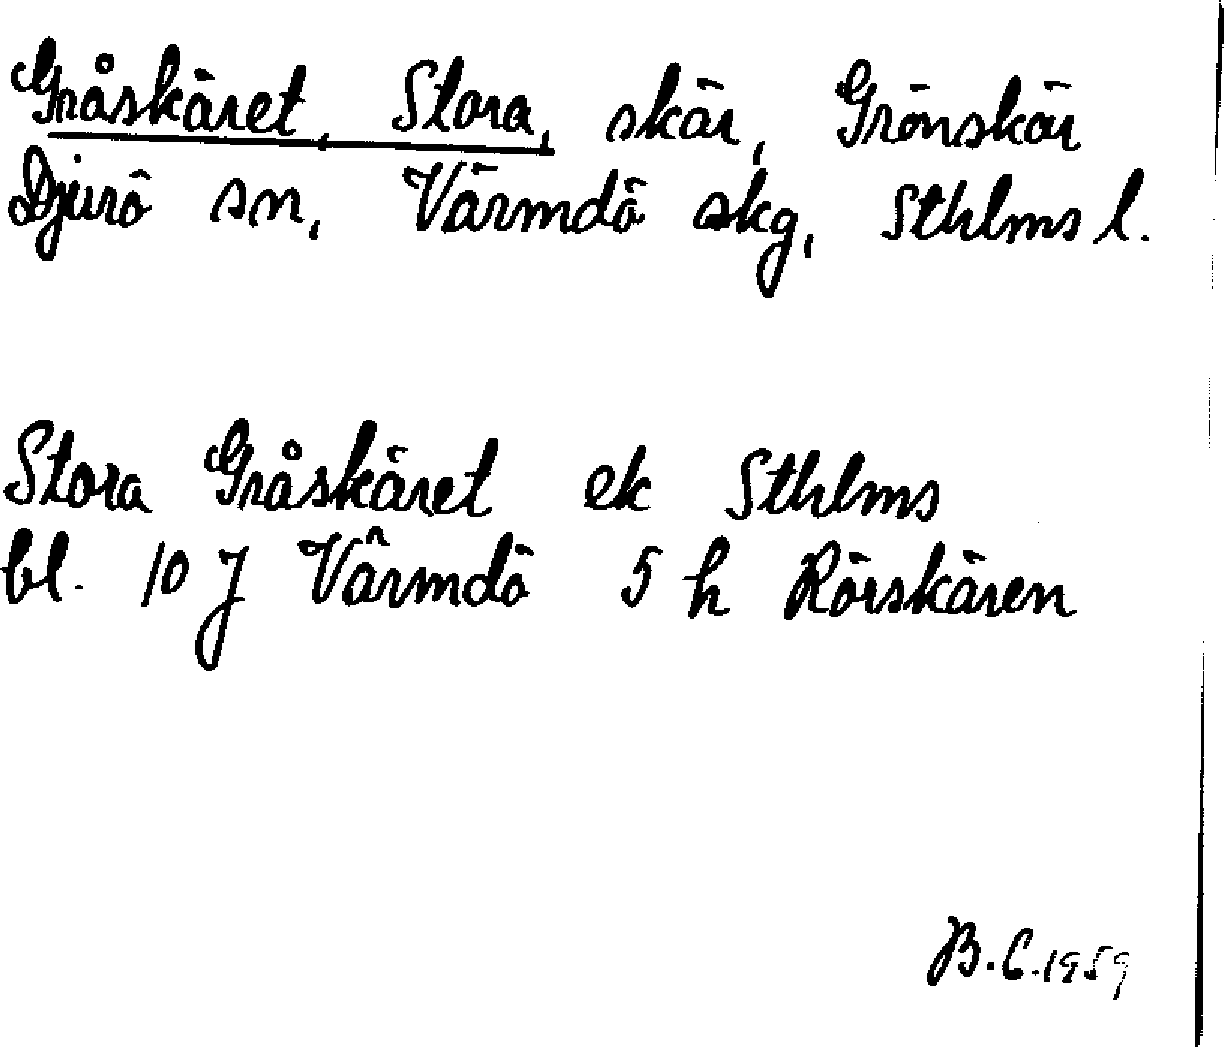 Gråskäret, Stora, skär, Grönskär
Djurö sn, Värmdö skg, Sthlms l.
Stora Gråskäret ek Sthlms
bl. 10 J Värmdö 5 h Rörskären
B.C. 1959